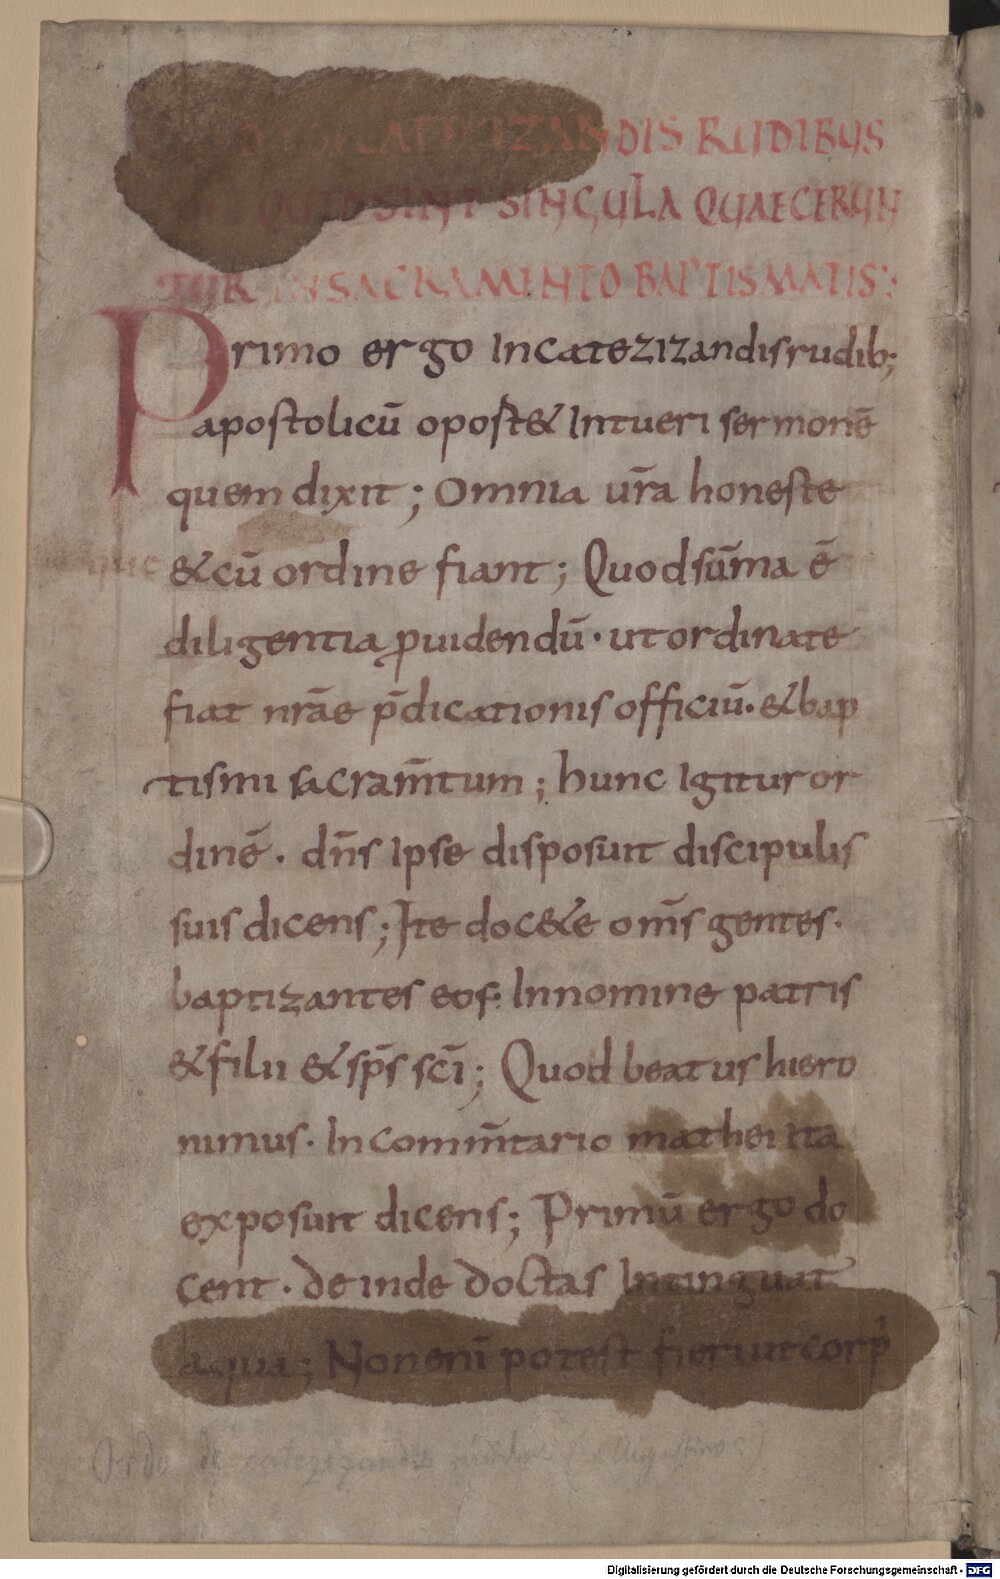 CATEZIZANDIS RUDIBUS
QUID SINT SINGULA QUAE CERUN
TUR IN SACRAMENTO BAPTISMATIS:
Primo ergo In catezizandis rudib;
apostolicū oportet& Intueri sermonē
quem dixit; Omnia ur̄a honeste
&cū ordine fiant; Quod sūma ē
diligentia ꝓuidendū· ut ordinate
fiat nr̄ae p̄dicationis officiū· &bap
tismi sacram̄tum; hunc Igitur or
dinē· dn̄s Ipse disposuit discipulis
suis dicens; Ite doc&e om̄s gentes·
baptizantes eos· In nomine patris
&filii &sp̄s sc̄i; Quod beatus hiero
nimus· In comm̄tario mathei ita
exposuit dicens; Primū ergo do
cent· deinde doctas Intinguat
aqua; Non enī potest fieri ut corp̄
Ordo de catezizandis rudibus (Augustino?)
Digitalisierung gefördert durch die Deutsche Forschungsgemeinschaft - DFG